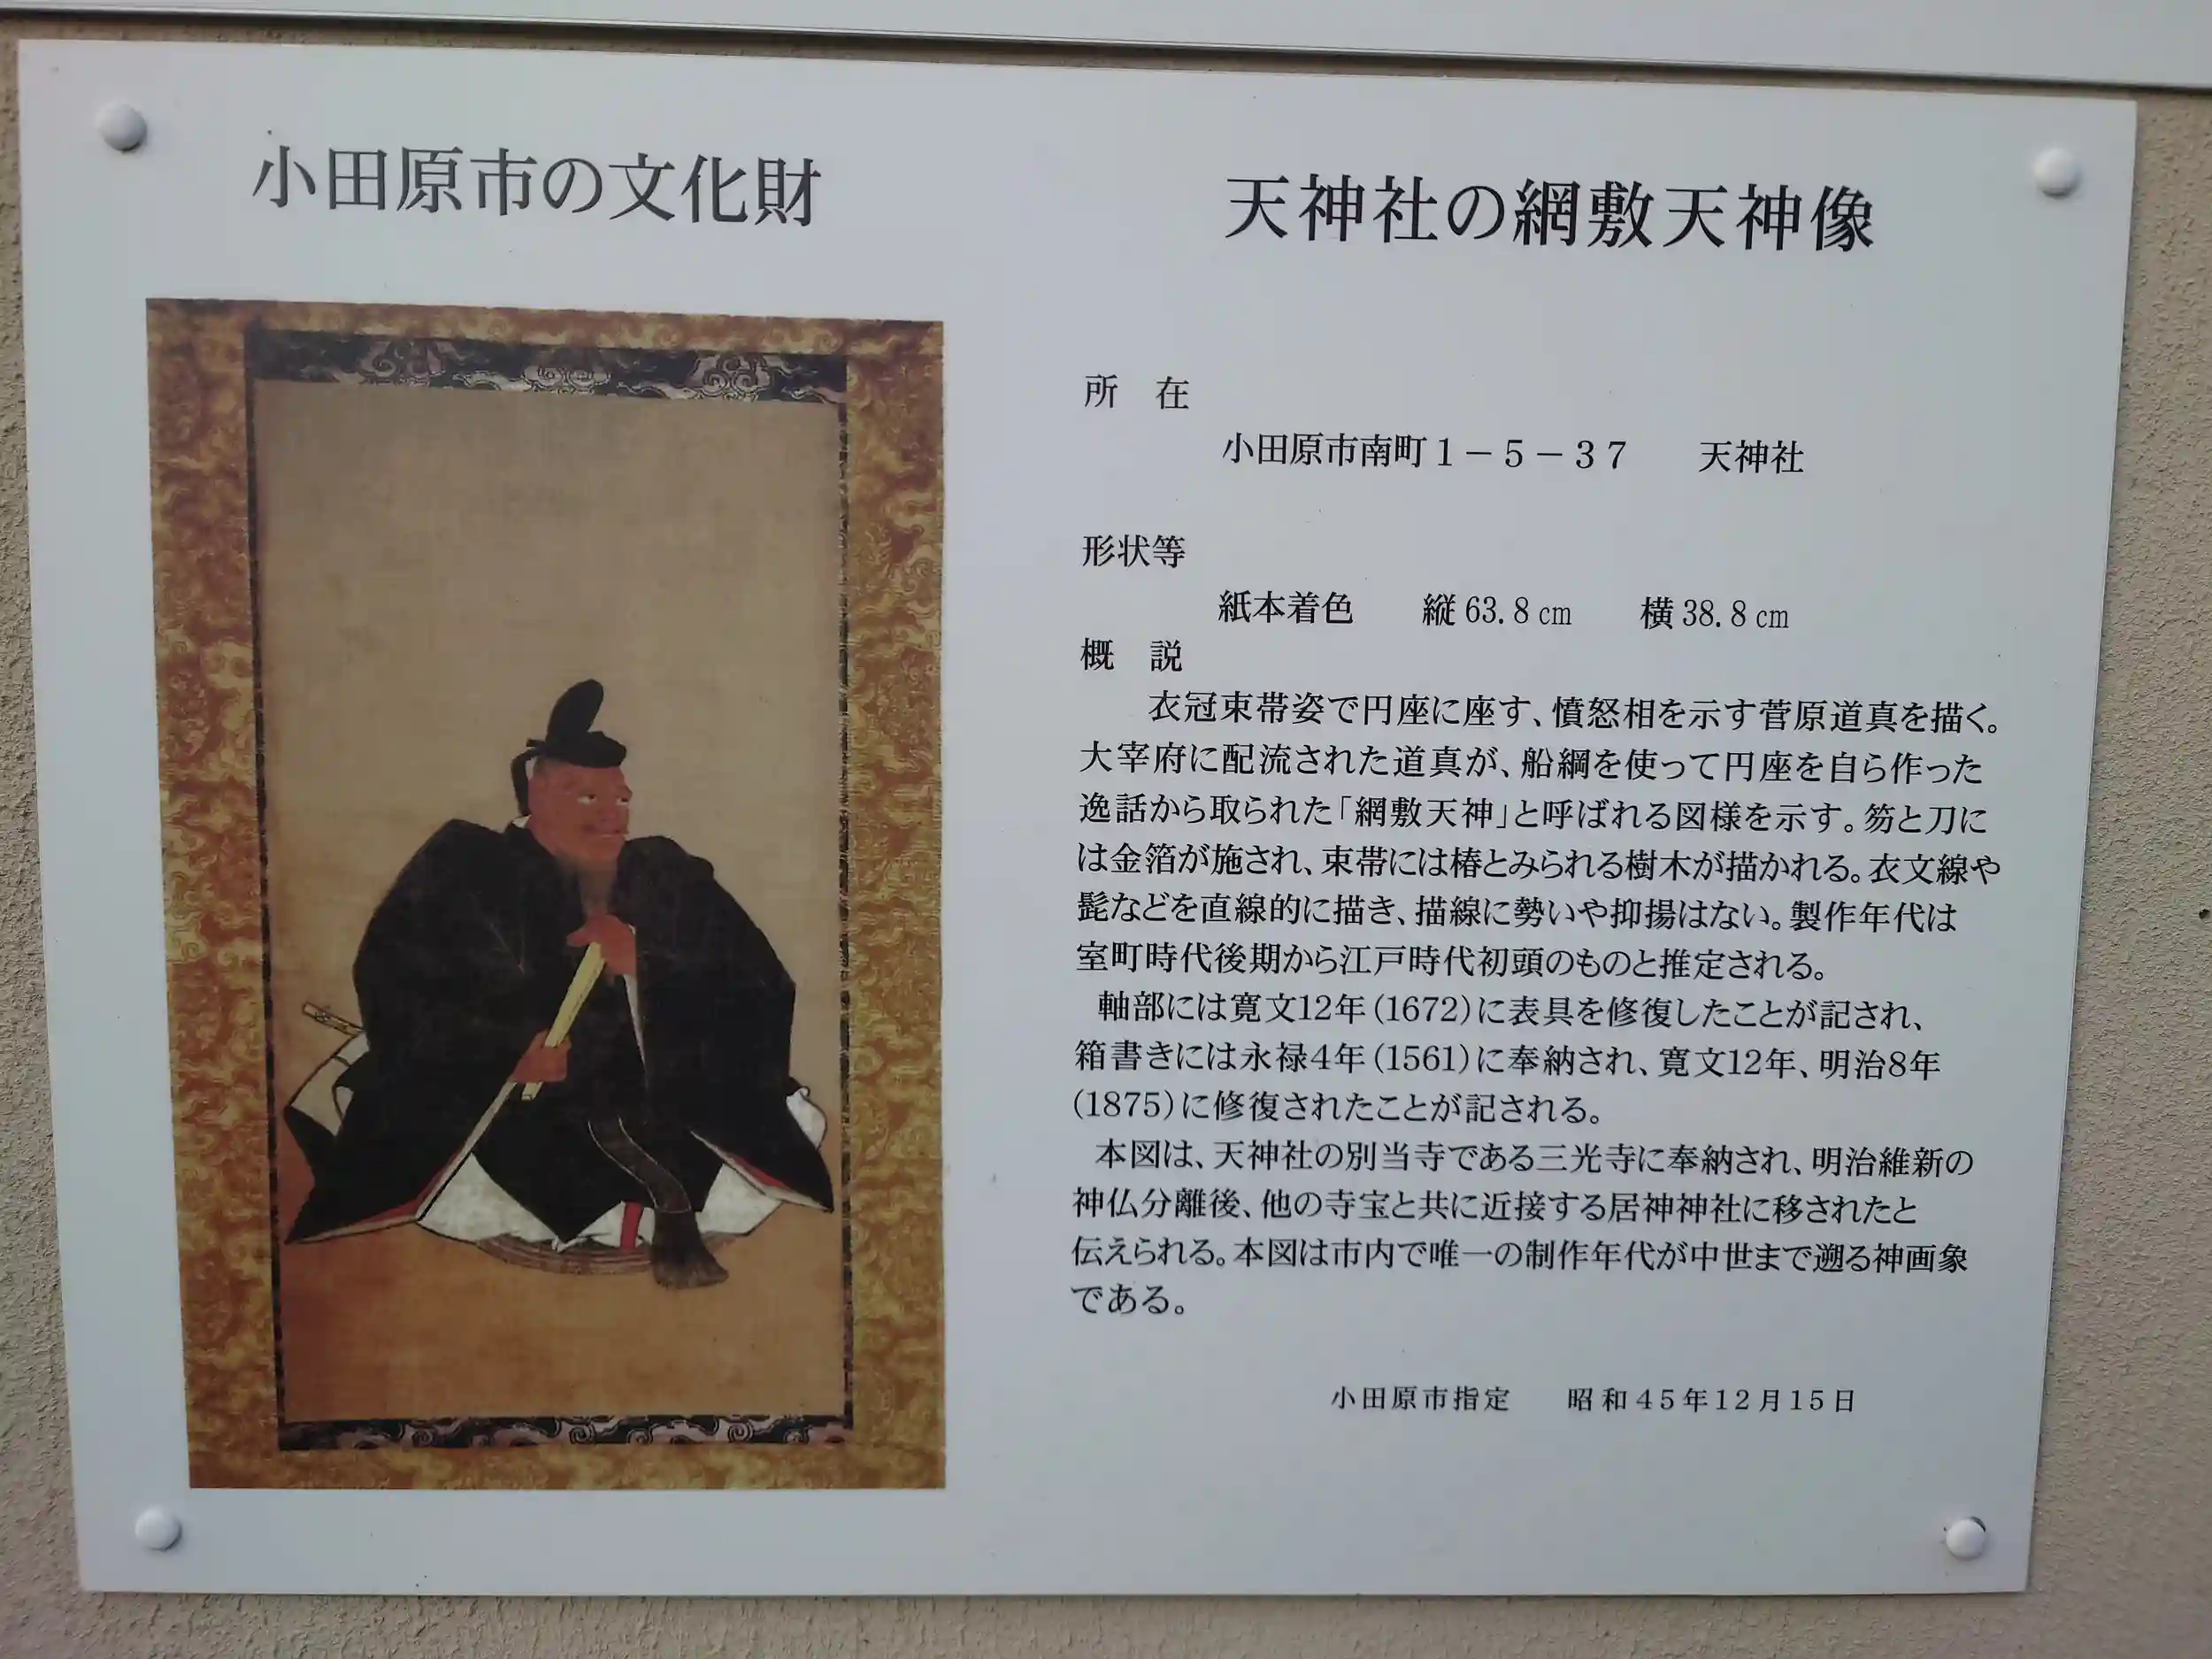 小田原市の文化財
天神社の網敷天神像
所　在
小田原市南町１－５－３７　　天神社
形状等
紙本着色　　縦63.8㎝　　横38.8㎝
概　説
衣冠束帯姿で円座に座す、憤怒相を示す菅原道真を描く。
大宰府に配流された道真が、船綱を使って円座を自ら作った
逸話から取られた「網敷天神」と呼ばれる図様を示す。笏と刀に
は金箔が施され、束帯には椿とみられる樹木が描かれる。衣文線や
髭などを直線的に描き、描線に勢いや抑揚はない。製作年代は
室町時代後期から江戸時代初頭のものと推定される。
軸部には寛文12年(1672)に表具を修復したことが記され、
箱書きには永禄4年(1561)に奉納され、寛文12年、明治8年
(1875)に修復されたことが記される。
本図は、天神社の別当寺である三光寺に奉納され、明治維新の
神仏分離後、他の寺宝と共に近接する居神神社に移されたと
伝えられる。本図は市内で唯一の制作年代が中世まで遡る神画象
である。
小田原市指定　　昭和４５年１２月１５日